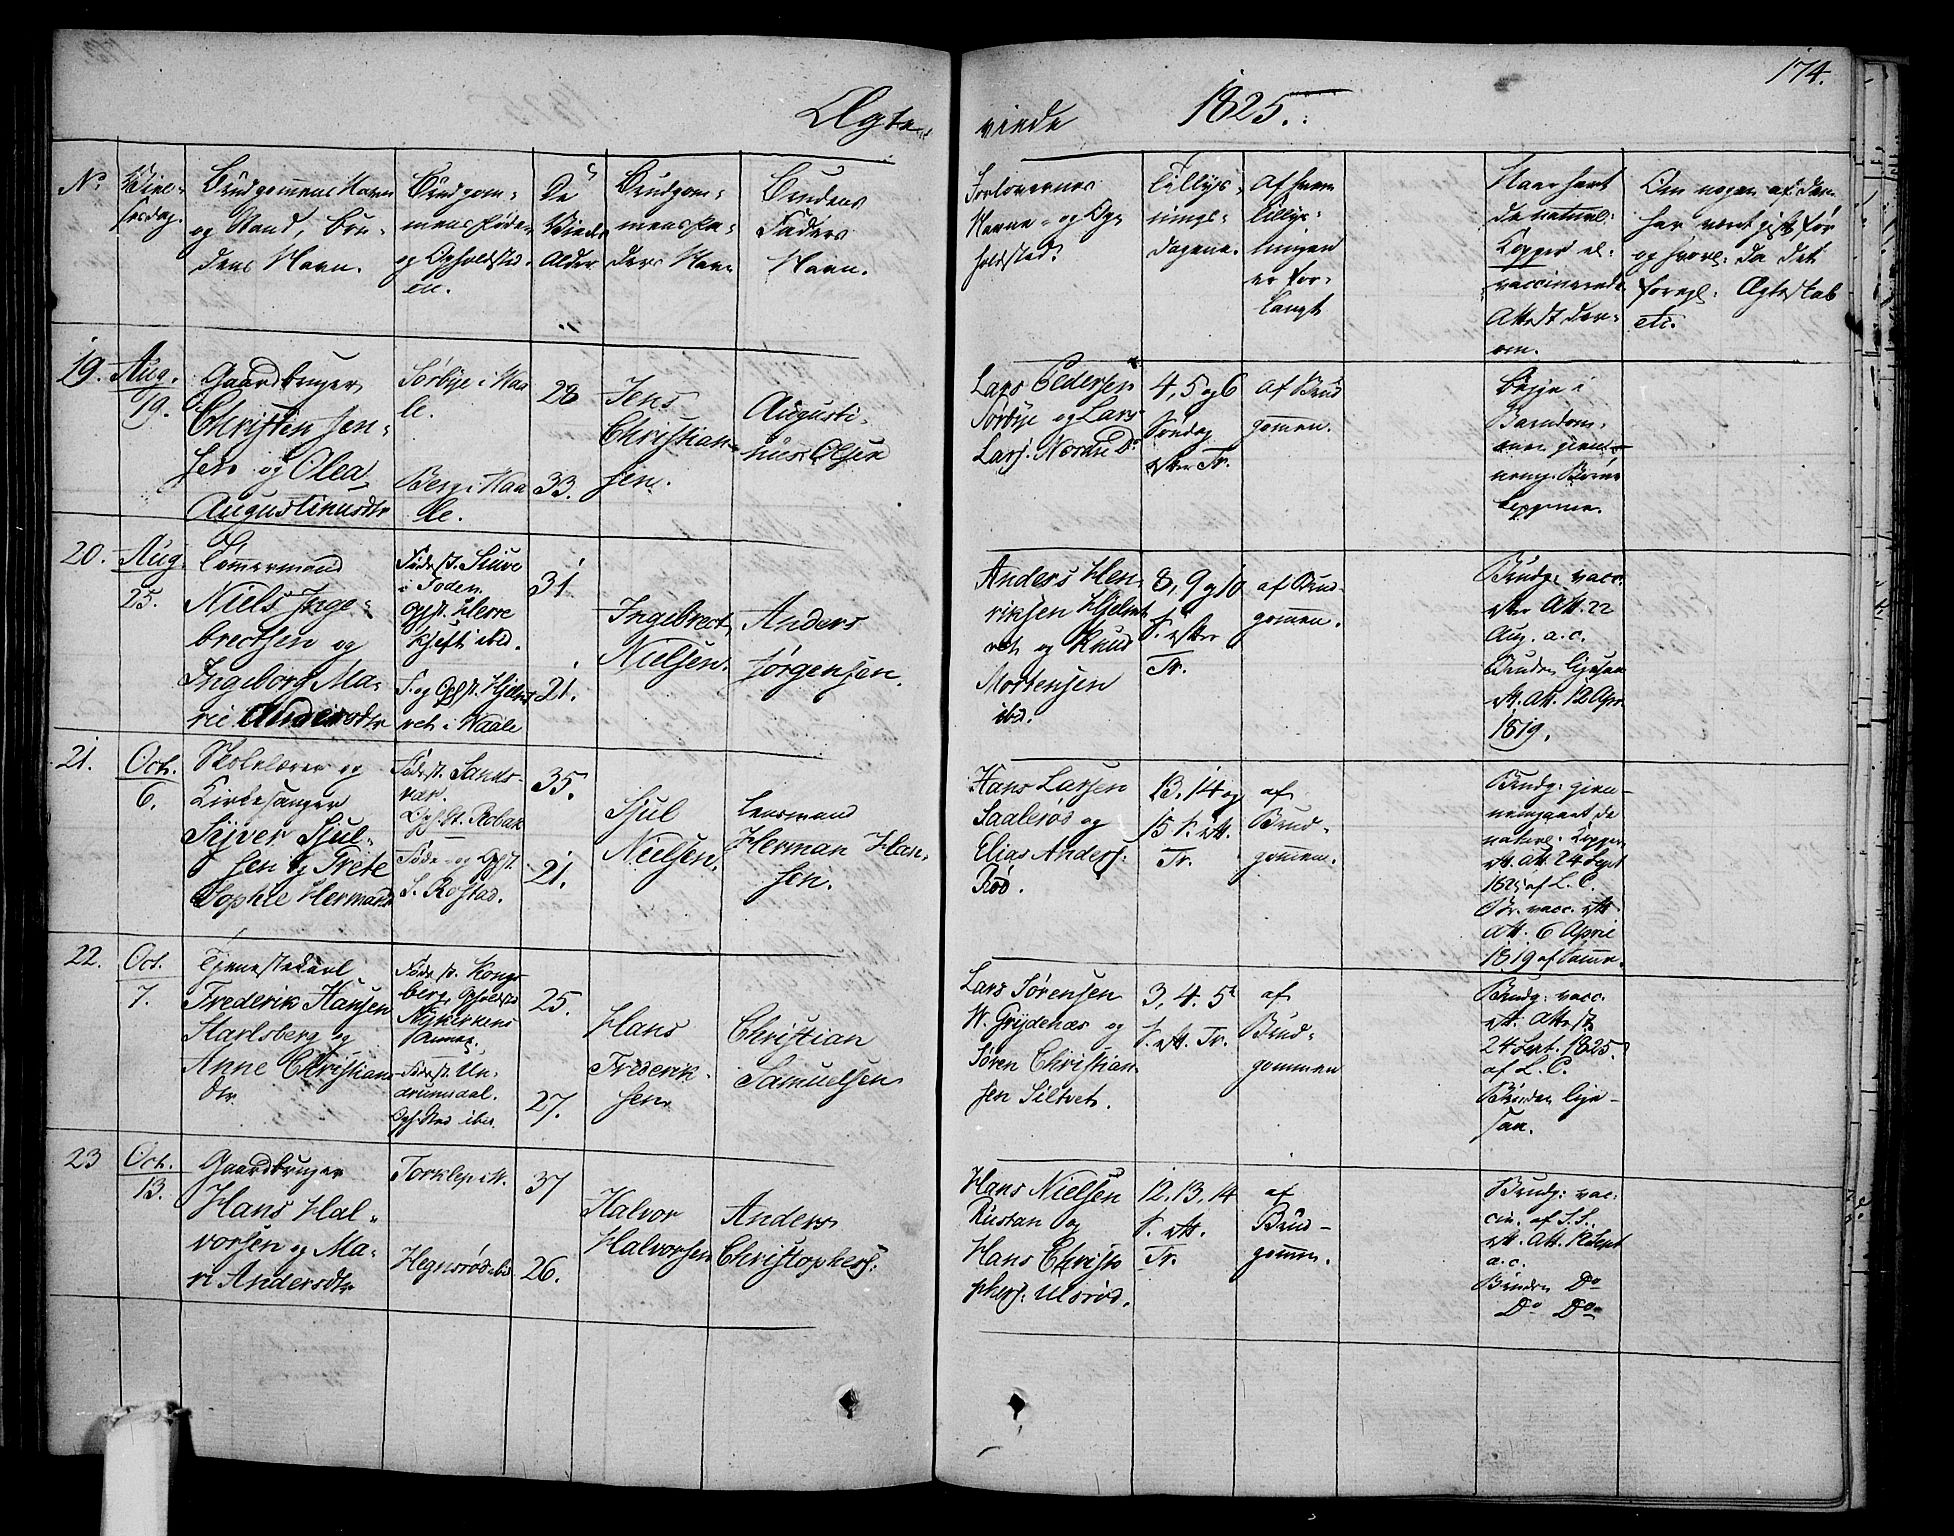 174.
Ægte
viede
1825.
No
Viel-
sesdag.
Brudgommens Navn
og Stand, Bru-
dens Navn.
Brudgom-
mens Føde
og Opholdsted
De
Viedes
Alder
Brudgom-
mens Fa-
ders Navn
Brudens
Faders
Navn.
Forlovernes
Navne og Op-
holdsted.
Tillys-
nings-
dagene.
Af hvem
tillys-
ningen
er for-
langt
Naar havt
de naturl:
Kopper el.
vaccinerede
Attest der-
om.
Om nogen af dem
har været gift før
og hvorl: da det
foregl: Ægteskab
etc.
19.
Aug.
19.
Gaardbruger
Christen Jen-
sen og Olea
Augustinusdtr
Sørbye i Vaa
le.
Berg i Vaa
le.
28
33.
Jens
Christian-
sen.
Augusti-
nus Olsen
Lars Pedersen
Sørbye og Lars
Lars. Nordre Do
4, 5 og 6
Søndag
efter Tr.
af Brud
gomen.
Begge i
Barndom-
men gien-
nemg. Børne
kopperne.
20.
Aug
25.
Tømermand
Niels Inge-
brectsen og
Ingeborg Ma-
rie Andersdtr
Fødest. Stuve
i Foden
Opst. Herre
kjeft ibd.
F. og Opst. Hjelmt
vet i Vaale
31.
21.
Ingebrect
Nielsen.
Anders
Jørgensen.
Anders Hen-
riksen Hjelmt
vet og Knud
Mortensen
ibd.
8, 9 og 10
S. efter
Tr.
af Brud-
gomen.
Brudg: vacc.
efter Att. 22
Aug. a.c.
Bruden ligesaa
eft. Att. 12 Apr.
1819.
21.
Oct.
6.
Skolelærer og
Kirkesanger
Siver Sjul-
sen og Grete
Sophie Hermansd
Fødest. Sands-
vær.
Opst. Robak
Føde- og Opst.
S. Rostad.
35.
21.
Sjul
Nielsen.
Lensmand
Herman Han-
sen.
Hans Larsen
Saalerøs og
Elias Anders.
Rød.
13, 14 og
15 S. eft.
Tr.
af
Brud-
gommen.
Brudg: gien-
nemgaaet de
naturl: Kopper
eft. Att. 24 Sept
1825 af L. C.
Br. vacc. eft
Att. 6 April
1819 af Samme.
22.
Oct.
7.
Tjenestekarl
Frederik Hansen
Karlsberg og
Anne Christians
dtr.
Fødest. Kongs
berg, Opholdsted
Nykirkens
Annex.
Fødest. Un-
drumsdal.
Opst. Sted ibd.
25.
27.
Hans
Friderik-
sen
Christian
Samuelsen
Lars Sørensen
W. Grydenæs og
Søren Christian-
sen Siltvet.
3, 4. 5
S. eft. Tr.
af
Brud-
gommen
Brudg: vacc.
eft. Attest
24 Sept. 1825.
af L. C.
Bruden lige-
saa.
23
Oct.
13.
Gaardbruger
Hans Hal-
vorsen og Ma-
ri Andersdtr
Torklep i V.
Hegnsrød ibd
37
26.
Halvor
Halvorsen
Anders
Christophers.
Hans Nielsen
Rustan og
Hans Christo
phers. Ulsrød.
12. 13. 14
S. eft.
Tr.
af
Brud-
gomen.
Brudg: vac-
cin. af S.S.
eft. Att. 12 Sept
a.c.
Bruden Do
Do Do